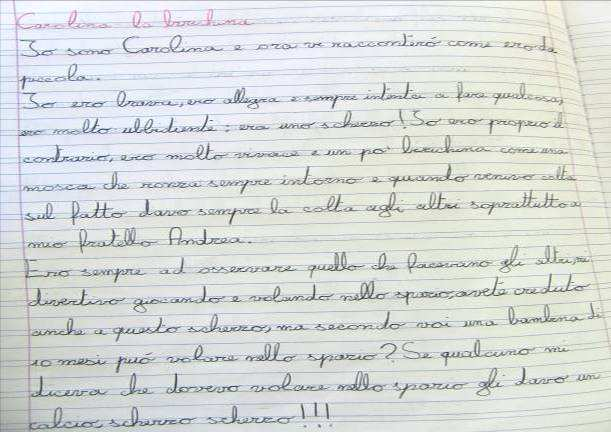 Carolina la birichina
Io sono Carolina e ora vi racconterò come ero da
piccola.
Io ero brava, ero allegra e sempre intenta a fare qualcosa,
ero molto ubbidiente: era uno scherzo! Io ero proprio il
contrario, ero molto vivace e un po' birichina come una
mosca che ronza sempre intorno e quando venivo colta
sul fatto davo sempre la colpa agli altri soprattutto a
mio fratello Andrea.
Ero sempre ad osservare quello che facevano gli altri, mi
divertivo giocando e volando nello spazio, avete creduto
anche a questo scherzo, ma secondo voi una bambina di
10 mesi può volare nello spazio? Se qualcuno mi
diceva che dovevo volare nello spazio gli davo un
calcio, scherzo scherzo!!!